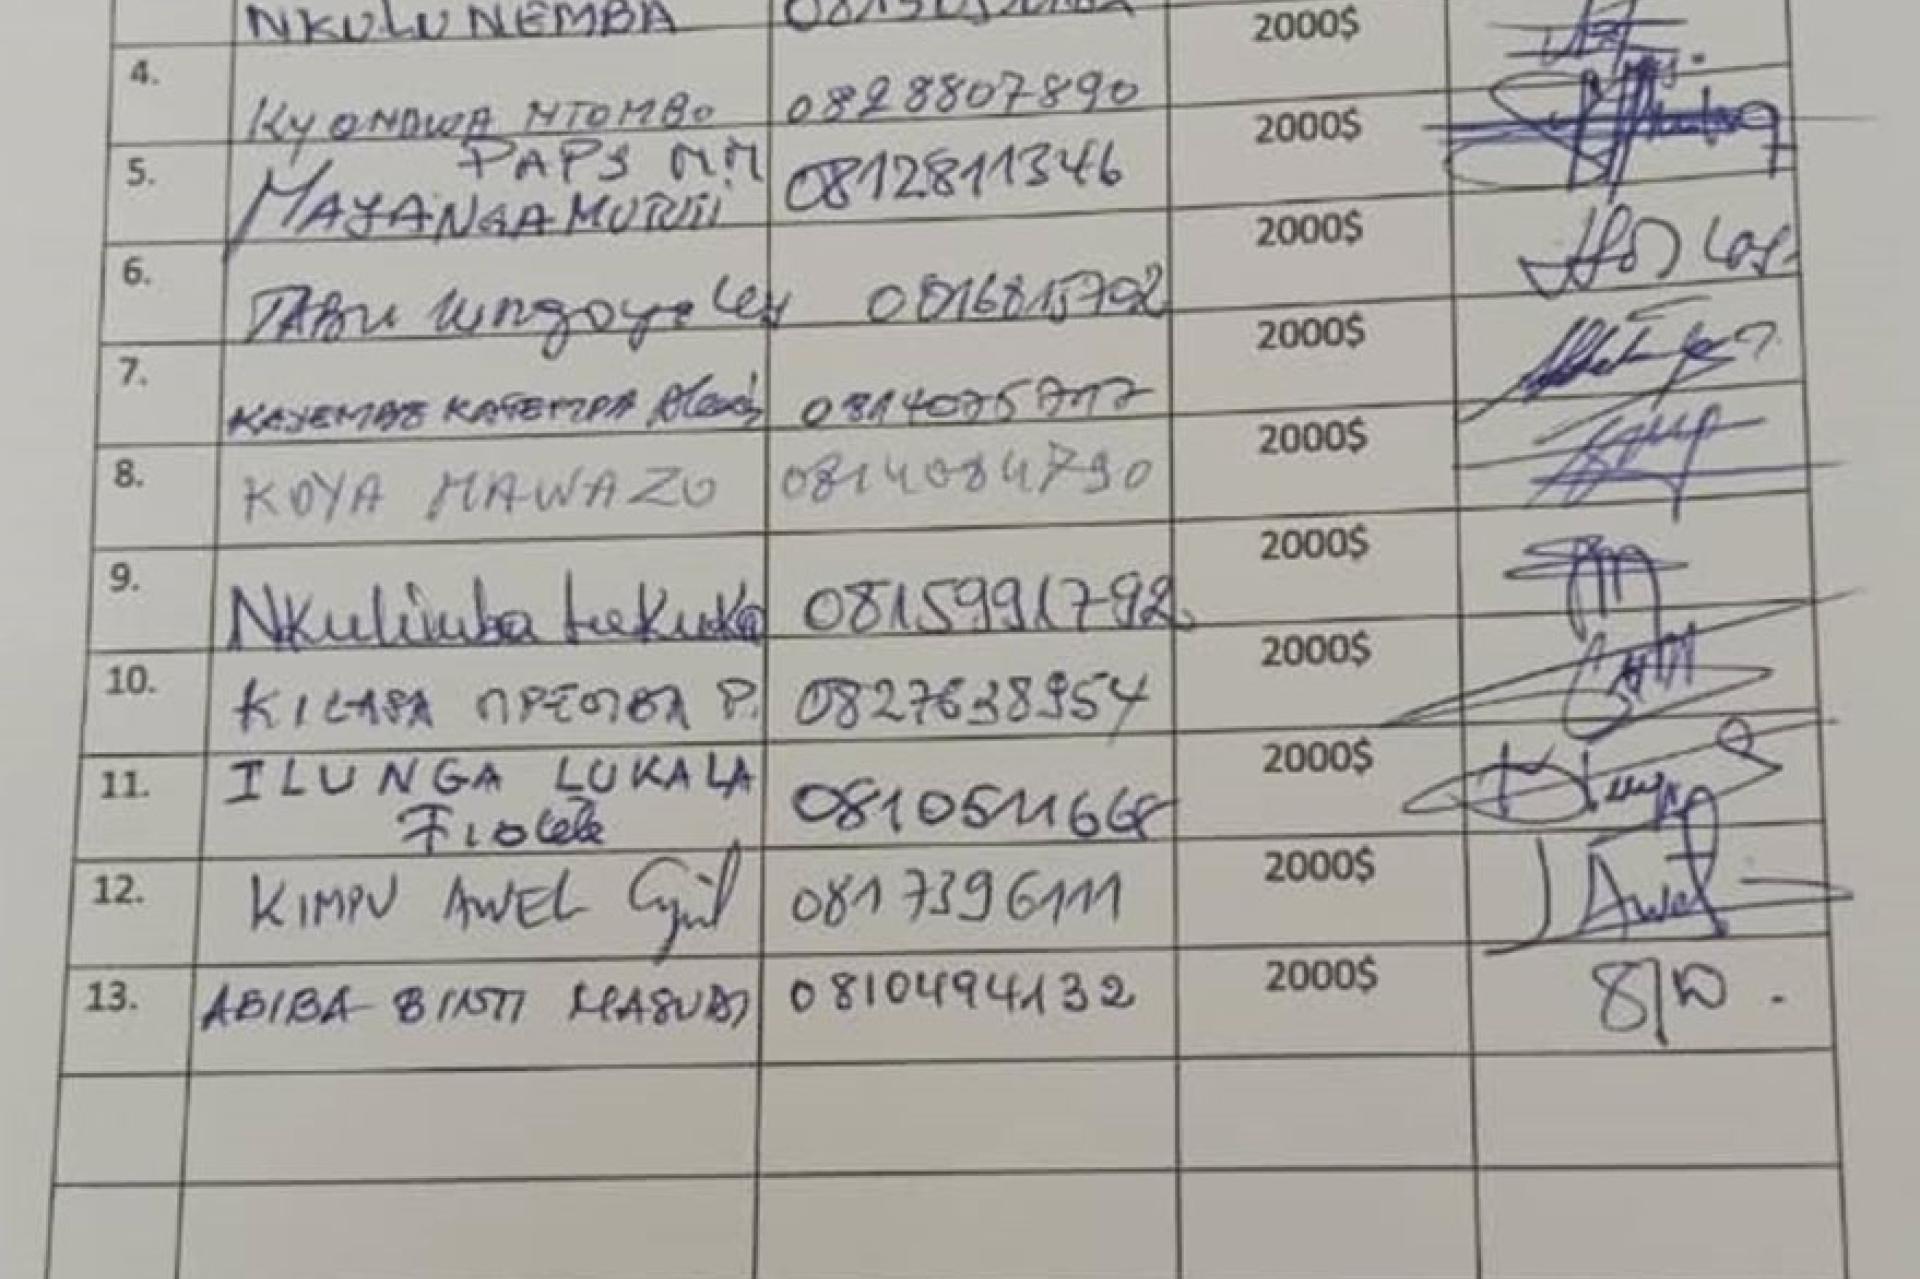 NKULU NEMBA 2000$
4. KYONDWA NTOMBO 0828807890 2000$
PAPS M.M
5. MAYANGA MUTUTI 0812811346 2000$
6. TABU Lungoye Ley 0816815792 2000$
7. KAYEMBE KATEMPA Alexis 0814075717 2000$
8. KOYA MAWAZO 0814084790 2000$
9. Nkulimba Lukuka 0815991792 2000$
10. KILAPA MPEMBA P. 0827638954 2000$
11. ILUNGA LUKALA 2000$
Fidèle 0810511668
12. KIMPU AWEL Cyril 0817396111 2000$
13. ABIBA BINTI MASUDI 0810494132 2000$